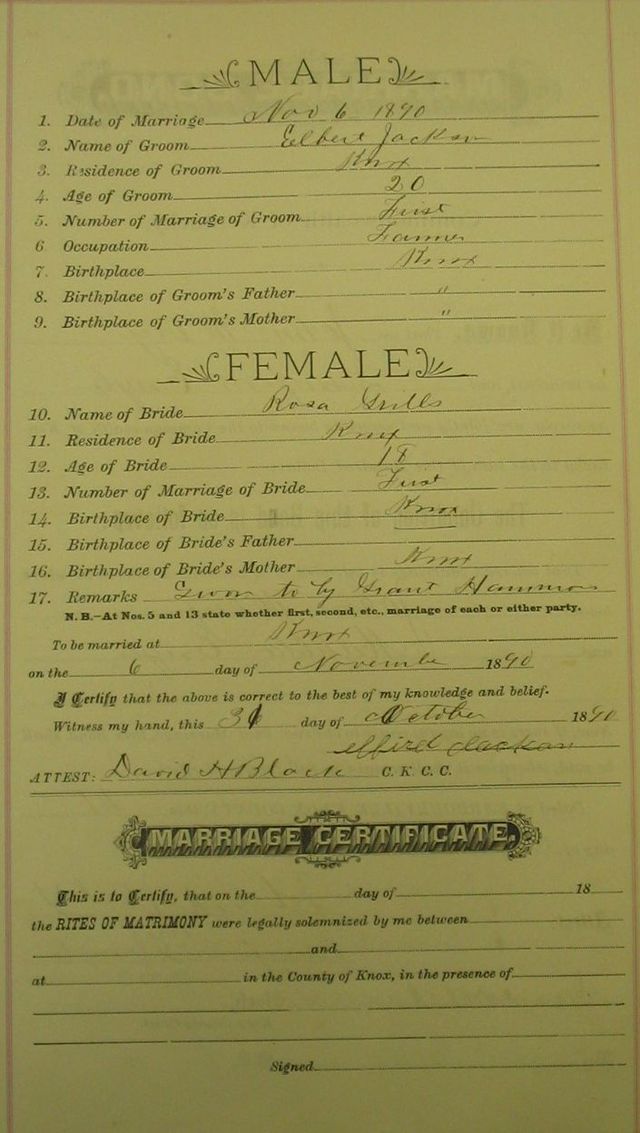 MALE
1. Date of Marriage Nov 6 1890
2. Name of Groom Elbert Jackson
3. Residence of Groom Knox
4. Age of Groom 20
5. Number of Marriage of Groom First
6 Occupation Farmer
7. Birthplace Knox
8. Birthplace of Groom's Father "
9. Birthplace of Groom's Mother "
FEMALE
10. Name of Bride Rosa Grills
11. Residence of Bride Knox
12. Age of Bride 18
13. Number of Marriage of Bride First
14. Birthplace of Bride Knox
15. Birthplace of Bride's Father
16. Birthplace of Bride's Mother Knox
17. Remarks Sworn to by Grant Hammons
N. B.—At Nos. 5 and 13 state whether first, second, etc., marriage of each or either party.
To be married at Knox
on the 6 day of November 1890
I Certify that the above is correct to the best of my knowledge and belief.
Witness my hand, this 31 day of October 1890
Jackson
ATTEST: David H Black C. K. C. C.
MARRIAGE CERTIFICATE.
This is to Certify, that on the day of 18
the RITES OF MATRIMONY were legally solemnized by me between
and
at in the County of Knox, in the presence of
Signed